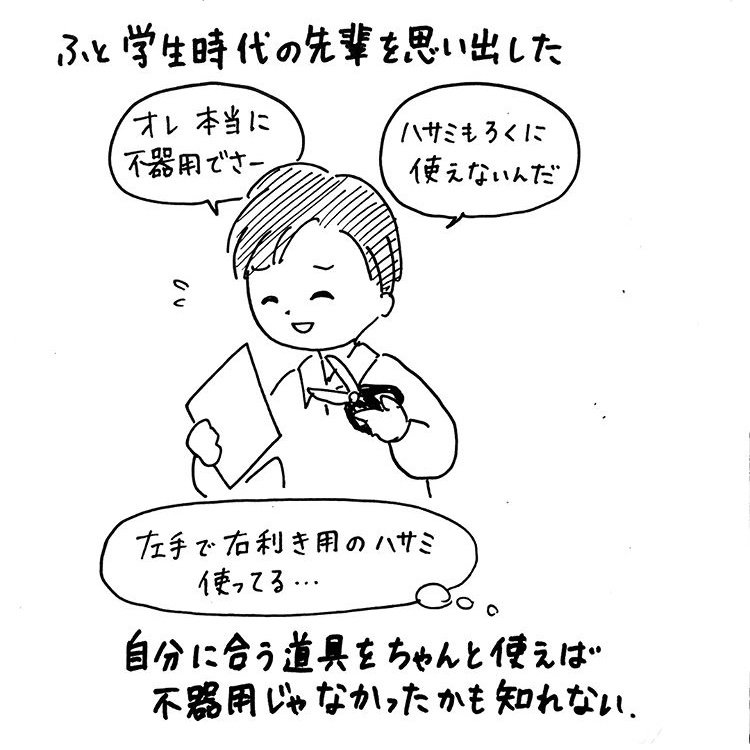 ふと学生時代の先輩を思い出した
オレ 本当に
不器用でさー
ハサミもろくに
使えないんだ
左手で右利き用のハサミ
使ってる…
自分に合う道具をちゃんと使えば
不器用じゃなかったかも知れない.